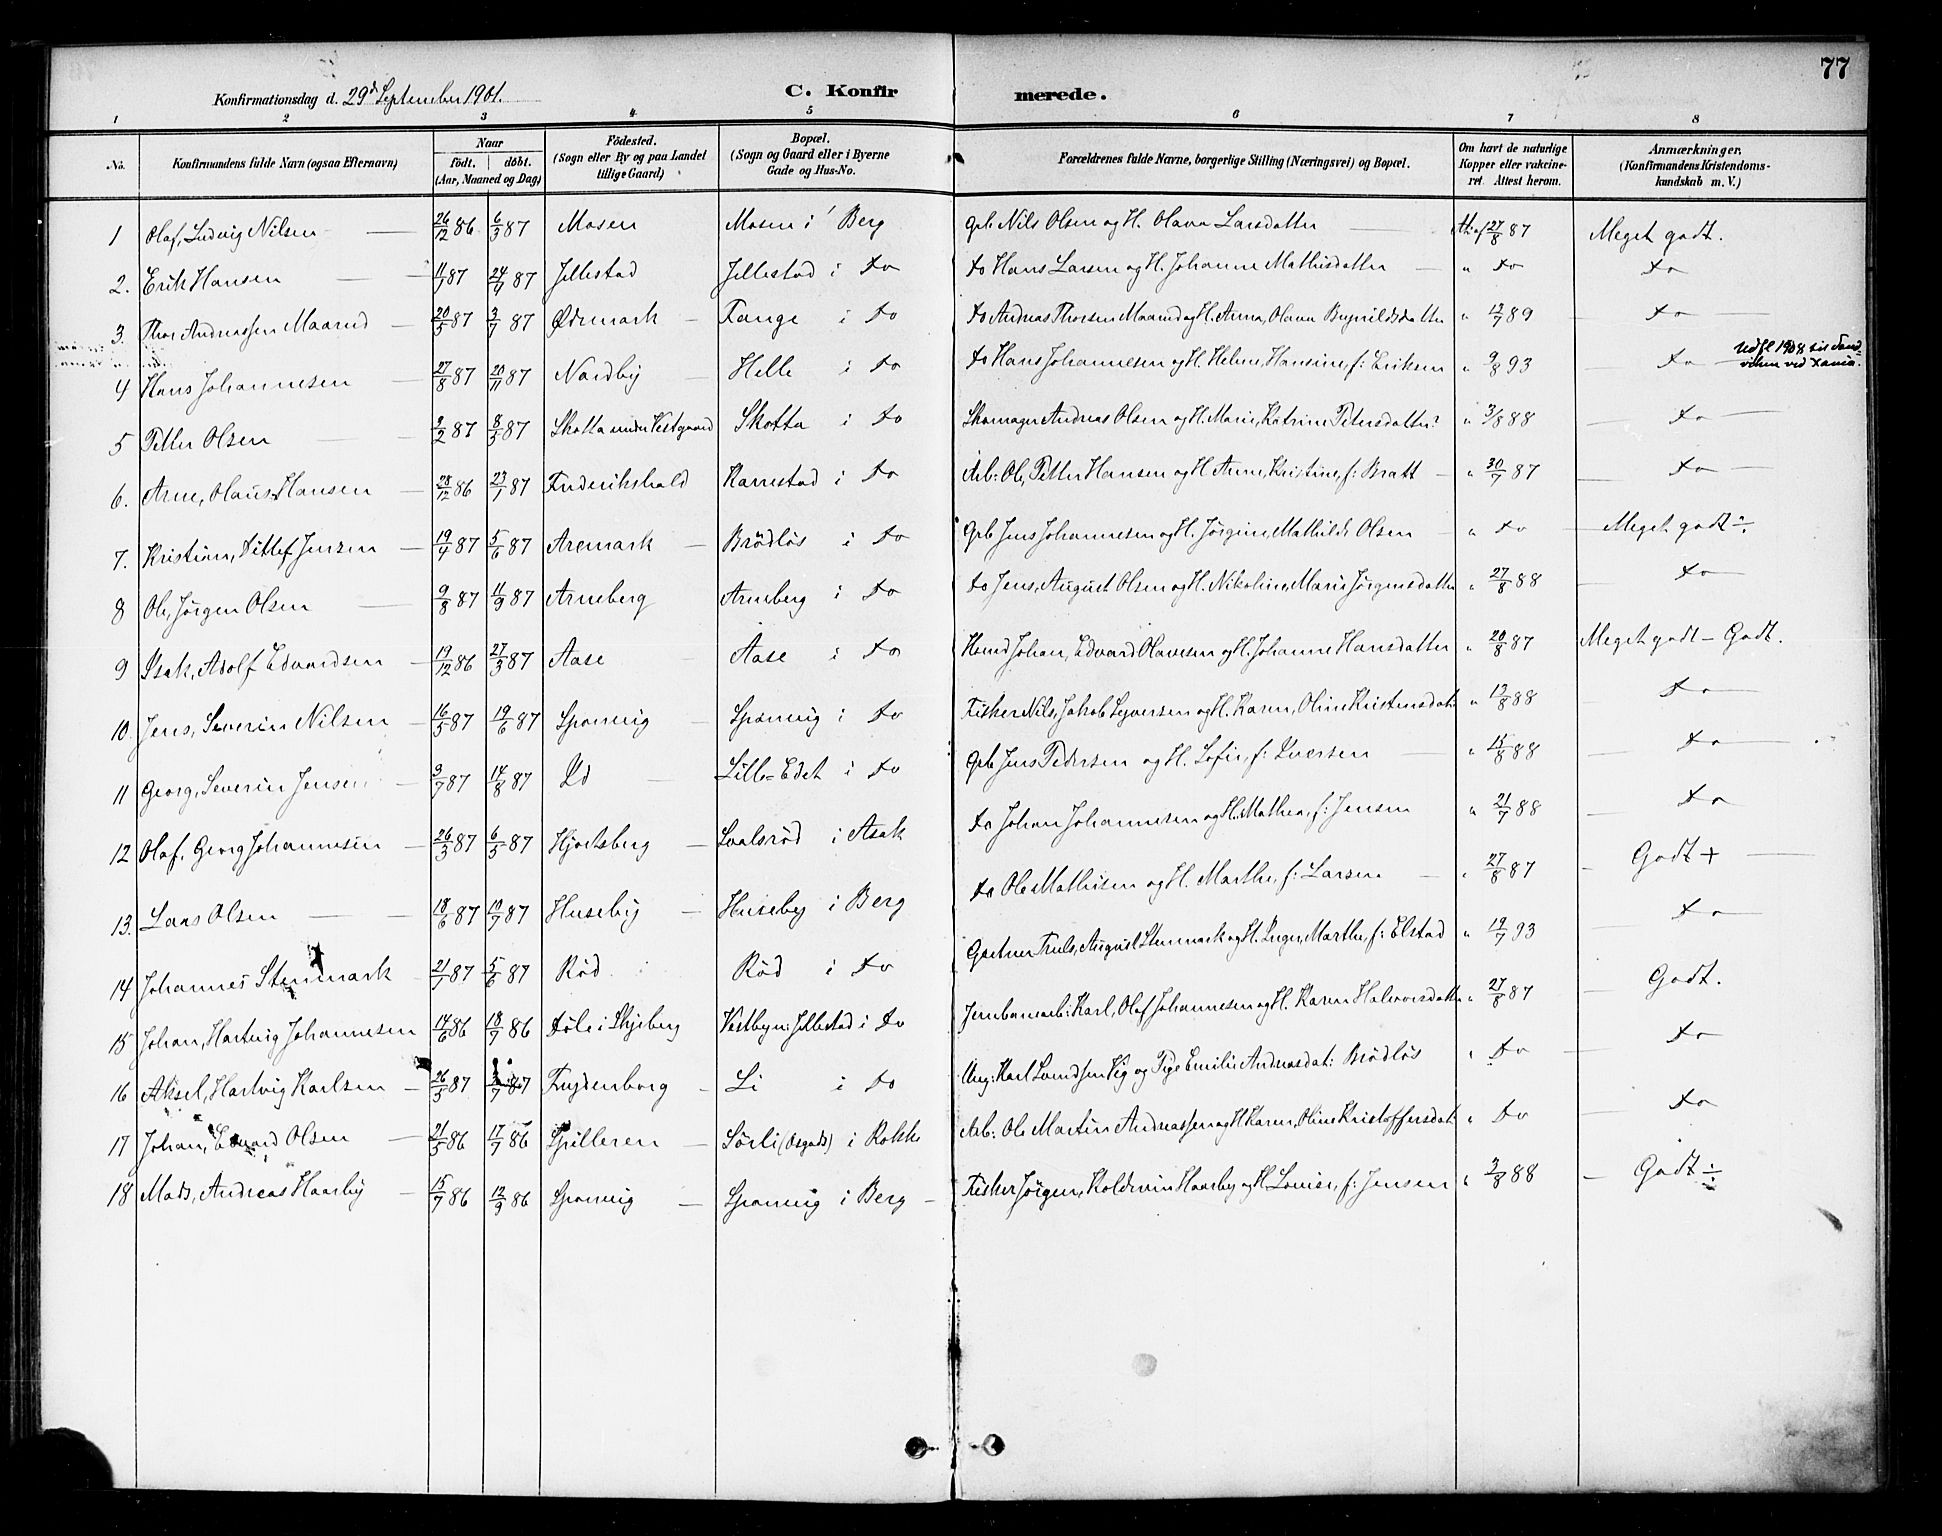 77
Konfirmationsdag d. 29de September 1901.
C. Konfirmerede.
1 2 3 4 5 6 7 8
No. Konfirmandens fulde Navn (ogsaa Efternavn) Naar födt. döbt. (Aar, Maaned og Dag) Födested. (Sogn eller By og paa Landet tillige Gaard) Bopæl. (Sogn og Gaard eller i Byerne Gade og Hus-No. Forældrenes fulde Navne, borgerlige Stilling (Næringsvei) og Bopæl. Om havt de naturlige Kopper eller vakcineret. Attest herom. Anmærkninger. (Konfirmandens Kristendomskundskab m. V.)
1 Olaf, Ludvig Nilsen 26/12 86 6/3 87 Mosen Mosen i Berg Grb Nils Olsen og H. Olava Larsdatter At: af 27/8 87 Meget godt.
2. Erik Hansen 24/4 87 Jellestad Jellestad i do do Hans Larsen og H. Johanne Mathisdatter " do do
3. Thor Andreassen Maarud 20/5 87 3/7 87 Ödemark Tange i do do Andreas Thorsen Maarud og H. Anna, Olava Brynildsdatter " 12/7 89 do
4 Hans Johannesen 27/8 87 20/11 87 Nordby Helle i do do Hans Johannesen og H. Helene, Hansine, f: Eriksen " 9/8 93 do Udfl 1908 til Sandviken ved Xania.
5 Petter Olsen 2/2 87 8/5 87 Skotta under Vestgaard Skotta i do Skomager Andreas Olsen og H. Marie, Katrine Petersdatter " 3/8 88 do
6. Arne, Olaus Hansen 28/12 86 23/1 87 Frederikshald Karrestad i do Arb: Ole, Petter Hansen og H. Anne, Kristine, f: Bratt " 30/7 87 do
7. Kristian, Ditlef Jensen 19/4 87 5/6 87 Aremark Brödlös i do Grb Jens Johannesen og H. Jörgine, Mathilde Olsen " do Meget godt ÷
8 Ole, Jörgen Olsen 9/8 87 11/9 87 Arneberg Arneberg i do do Jens, August Olsen og H. Nikoline, Marie Jörgensdatter " 27/8 88 do
9 Isak, Adolf Edvardsen 19/12 86 27/3 87 Aase Aase i do Johan, Edvard Olavesen og H. Johanne Hansdatter " 20/8 87 Meget godt – Godt.
10. Jens, Severin Nilsen 16/5 87 19/6 87 Sponvig Sponvig i do Fisker Nils, Jakob Syversen og H. Karen, Oline Kristensdat: " 13/8 88 do
11 Georg, Severin Jensen 3/7 87 14/8 87 Id Lille-Edet i do Grb Jens Pedersen og H. Sofie, f: Iversen " 15/8 88 do
12 Olaf, Georg Johannesen 26/3 87 6/5 87 Hjortsberg Svalsröd i Asak do Johan Johannesen og H. Mathea, f: Jensen " 21/7 88 do
13. Lars Olsen 18/6 87 10/7 87 Huseby Huseby i Berg do Ole Mathisen og H. Marthe, f: Larsen " 27/8 87 Godt +
14 Johannes Stenmark 21/1 87 5/6 87 Röd Röd i do Gartner Truls, August Stenmark og H. Inger, Marthe, f: Elstad " 19/7 93 do
15 Johan, Hartvig Johannesen 14/6 86 18/7 86 Döle i Skjeberg Vestbyen: Jellestad i do Jernbanearb: Karl, Olaf Johannesen og H. Karen Halvorsdatter " 27/8 87 Godt.
16 Aksel, Hartvig Karlsen 26/3 87 3/7 87 Frydenborg Li i do Ung: Karl Svendsen Vig og Pige Emilie Andreasdat: Brödlös " do do
17 Johan, Edvard Olsen 21/5 86 17/7 86 Spilleren Sörli (Osgods) i Rokke Arb: Ole Martin Andreassen og H. Karen, Oline Kristoffersdat: " do do
18 Mads, Andreas Haarby 15/7 86 12/9 86 Sponvig Sponvig i Berg Fisker Jörgen, Koldevin Haarby og H. Lovise, f: Jensen " 3/8 88 Godt ÷